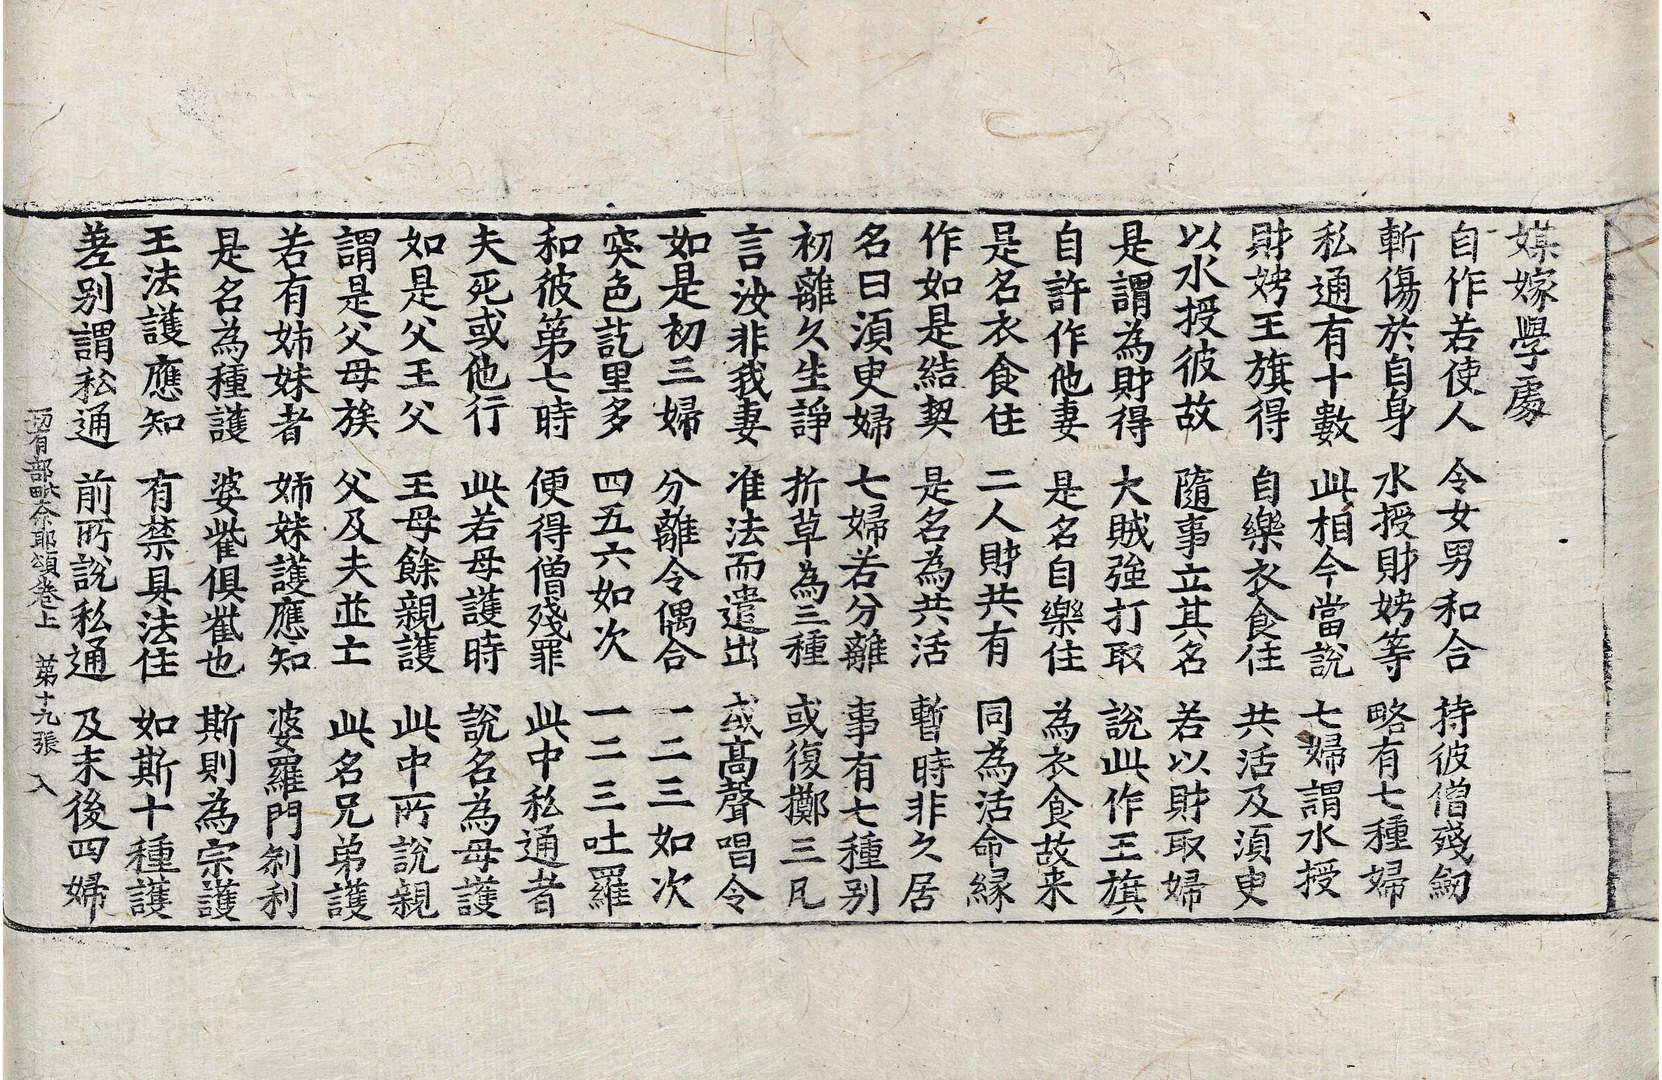 媒嫁學處
自作若使人 令女男和合 持彼僧殘劒
斬傷於自身 水授財娉等 略有七種婦
私通有十數 此相今當說 七婦謂水授
財娉王旗得 自樂衣食住 共活及湏臾
以水授彼故 隨事立其名 若以財取婦
是謂為財得 大賊強打取 說此作王旗
自許作他妻 是名自樂住 為衣食故来
是名衣食住 二人財共有 同為活命緣
作如是結契 是名為共活 暫時非久居
名曰湏臾婦 七婦若分離 事有七種別
初離久生諍 折草為三種 或復擲三瓦
言汝非我妻 准法而遣出 或高聲唱令
如是初三婦 分離令偶合 一二三如次
突色訖里多 四五六如次 一二三吐羅
和彼第七時 便得僧殘罪 此中私通者
夫死或他行 此若母護時 說名為母護
如是父王父 王母餘親護 此中所說親
謂是父母族 父及夫並亡 此名兄弟護
若有姊妹者 姊妹護應知 婆羅門剎利
是名為種護 婆㭰俱㩲也 斯則為宗護
王法護應知 有禁具法住 如斯十種護
差別謂私通 前所說私通 及末後四婦
切有部毗奈耶頌卷上 第十九張 入